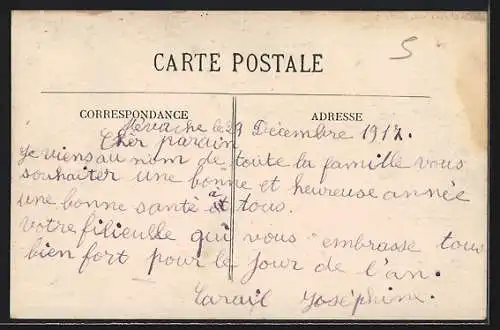 5
CARTE POSTALE
CORRESPONDANCE
ADRESSE
Névache le 29 Décembre 1917.
Cher parain
Je viens au nom de toute la famille vous
souhaiter une bonne et heureuse année
une bonne santé à tous.
votre filieulle qui vous embrasse tous
bien fort pour le Jour de l'an.
Joséphine.